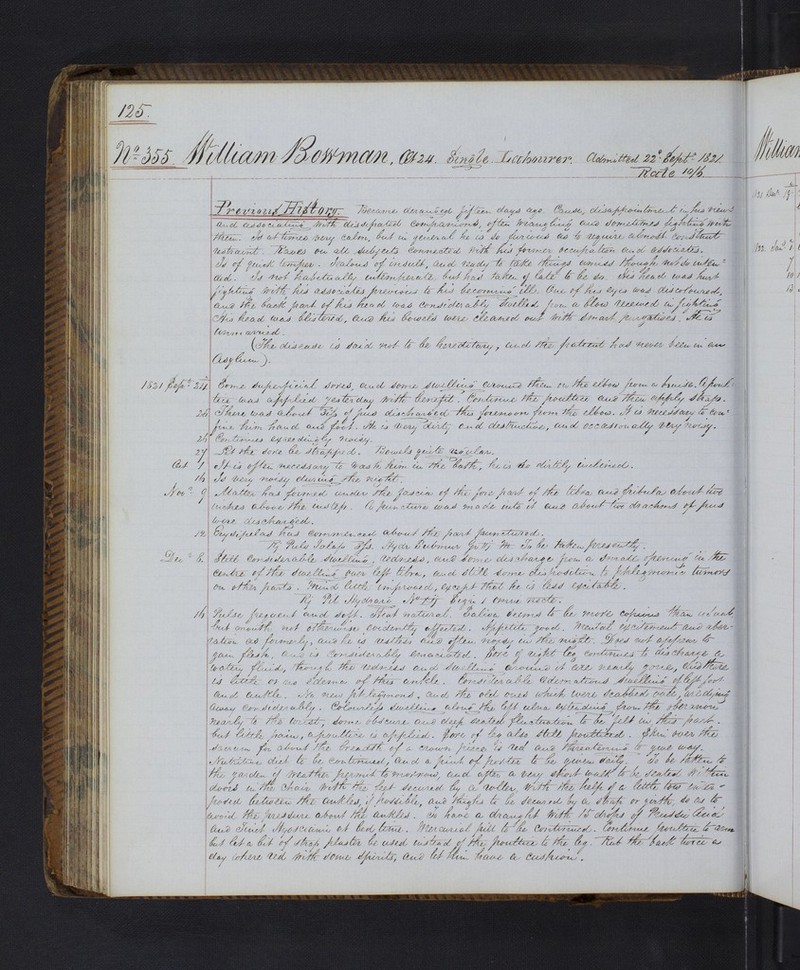 125.
No. 355 William Bowman, Æt 24. Single Labourer. Admitted 22d. Septr. 1821.
Rate 10/6.
William
Previous History. Became deranged fifteen days ago. Cause, disappointment in his views
and associating with dissipated companions, often wrangling and sometimes fighting with
them. Is at times very calm, but in general he is so furious as to require almost constant
restraint. Raves on all subjects connected with his former occupation and associates.
Is of quick temper. Jealous of insult, and ready to take things amiss though not so inten-
ded. Is not habitually intemperate but has taken of late to be so. His head was hurt
fighting with his associates previous to his becoming ill. One of his eyes was discoloured,
and the back part of his head was considerably swelled from a blow received in fighting.
His head was blistered, and his bowels were cleaned out with smart purgatives. He is
unmarried.
(The disease is said not to be hereditary, and the patient has never been in an
Asylum).
1821 Sept. 24 Some superficial sores, and some swelling around them on the elbow from a bruise. A poul-
tice was applied yesterday with benefit. Continue the poultice and then apply straps.
There was about of pus discharged this forenoon from the elbow. It is necessary to con-
fine him hand and foot. He is very dirty and destructive, and occasionally very noisy.
Continues exceedingly noisy.
27 Let the sore be strapped. Bowels quite regular.
Oct 1 It is often necessary to wash him in the bath, he is so dirtily inclined.
16 Is very noisy during the night.
Nov. 9 Matter has formed under the fascia of the fore part of the tibia and fibula about two
inches above the instep. A puncture was made into it and about two drachms of pus
were discharged.
12 Erysipelas has commenced about the part punctured.
Pulv Jalap To be taken presently.
Dec. 8. Still considerable swelling, redness, and some discharge from a small opening in the
centre of the swelling over left tibia, and still some disposition to phlegmonic tumors
on other parts. Mind little improved, except that he is less excitable.
Pil Hydrarg omni nocte.
16 Pulse frequent and soft. That natural. Saliva seems to be more copious than usual
but mouth not otherwise evidently affected. Appetite good. Mental excitement and aber-
ration as formerly, and he is restless and often noisy in the night. Does not appear to
gain flesh, and is considerably emaciated. Sore of right leg continues to discharge a
watery fluid, though the redness and swelling around it are nearly gone, and there
is little or no edema of this ankle. Considerable edematous swelling of left foot
and ankle. No new phlegmons, and the old ones which were scabbed over, are dying
away considerably. Colourless swelling along the left ulna extending from the olecranon
nearly to the wrist, some obscure and deep seated fluctuation to be felt in this part.
but little pain, a poultice is applied. Sore of leg also still poulticed. Skin over the
sacrum for about the breadth of a crown piece is red and threatening to give way.
Nutritious diet to be continued, and a pint of porter to be given daily. To be taken to
the garden if weather permit to-morrow, and after a very short walk to be seated within
doors in the chair with the feet secured by a roller, with the help of a little tow inter-
posed between the ankles, if possible, and thighs to be secured by a strap or girth, so as to
avoid the pressure about the ankles. To have a draught with 15 drops of Prussic Acid
and Tinct Hyosciami at bed time. Mercurial pill to be continued. Continue poultice to arm
but let a bit of strap plaster be used instead of the poultice to the leg. Rub the back twice a
day where red with some spirits, and let him have a cushion.